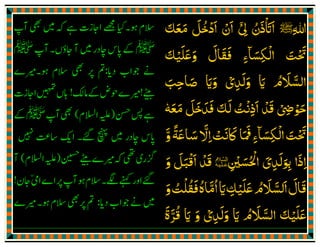 اللهِ ﷺ اَتَاْذَنُ لِیْ اَنْ اَدْخُلَ مَعَکَ
تَحْتَ الْکِسَآءِ فَقَالَ وَعَلَیْکَ
السَّلَامُ یَا وَلَدِیْ وَیَا صَاحِبَ
حَوْضِیْ قَدْ اَذِنْتُ لَکَ فَدَخَلَ مَعَهُ
تَحْتَ الْکِسَآءِ فَمَا کَانَتْ اِلَّا سَاعَةً وَّ
اِذَا بِوَلَدِیَ الْحُسَیْنِ قَدْ اَقْبَلَ وَ
قَالَ اَلسَّلَامُ عَلَیْکِ یَا اُمَّاهُ فَقُلْتُ وَ
عَلَیْکَ السَّلَامُ یَا وَلَدِیْ وَ یَا قُرَّةَ
سلام ہو۔ کیا مجھے اجازت ہے کہ میں بھی آپ
ﷺ کے پاس چادر میں آ جاؤں۔ آپ ﷺ
نے جواب دیا: تم پر بھی سلام ہو۔ میرے
بیٹے! میرے حوض کے مالک! ہاں تمہیں اجازت
ہے پس حسن (علیہ السلام) بھی آپ ﷺ کے
پاس چادر میں پہنچ گئے۔ ایک ساعت نہیں
گزری تھی کہ میرے بیٹے حسین (علیہ السلام) آ
گئے اور کہنے لگے۔ سلام ہو آپ پر اے امی جان!
میں نے جواب دیا: تم پر بھی سلام ہو۔ میرے